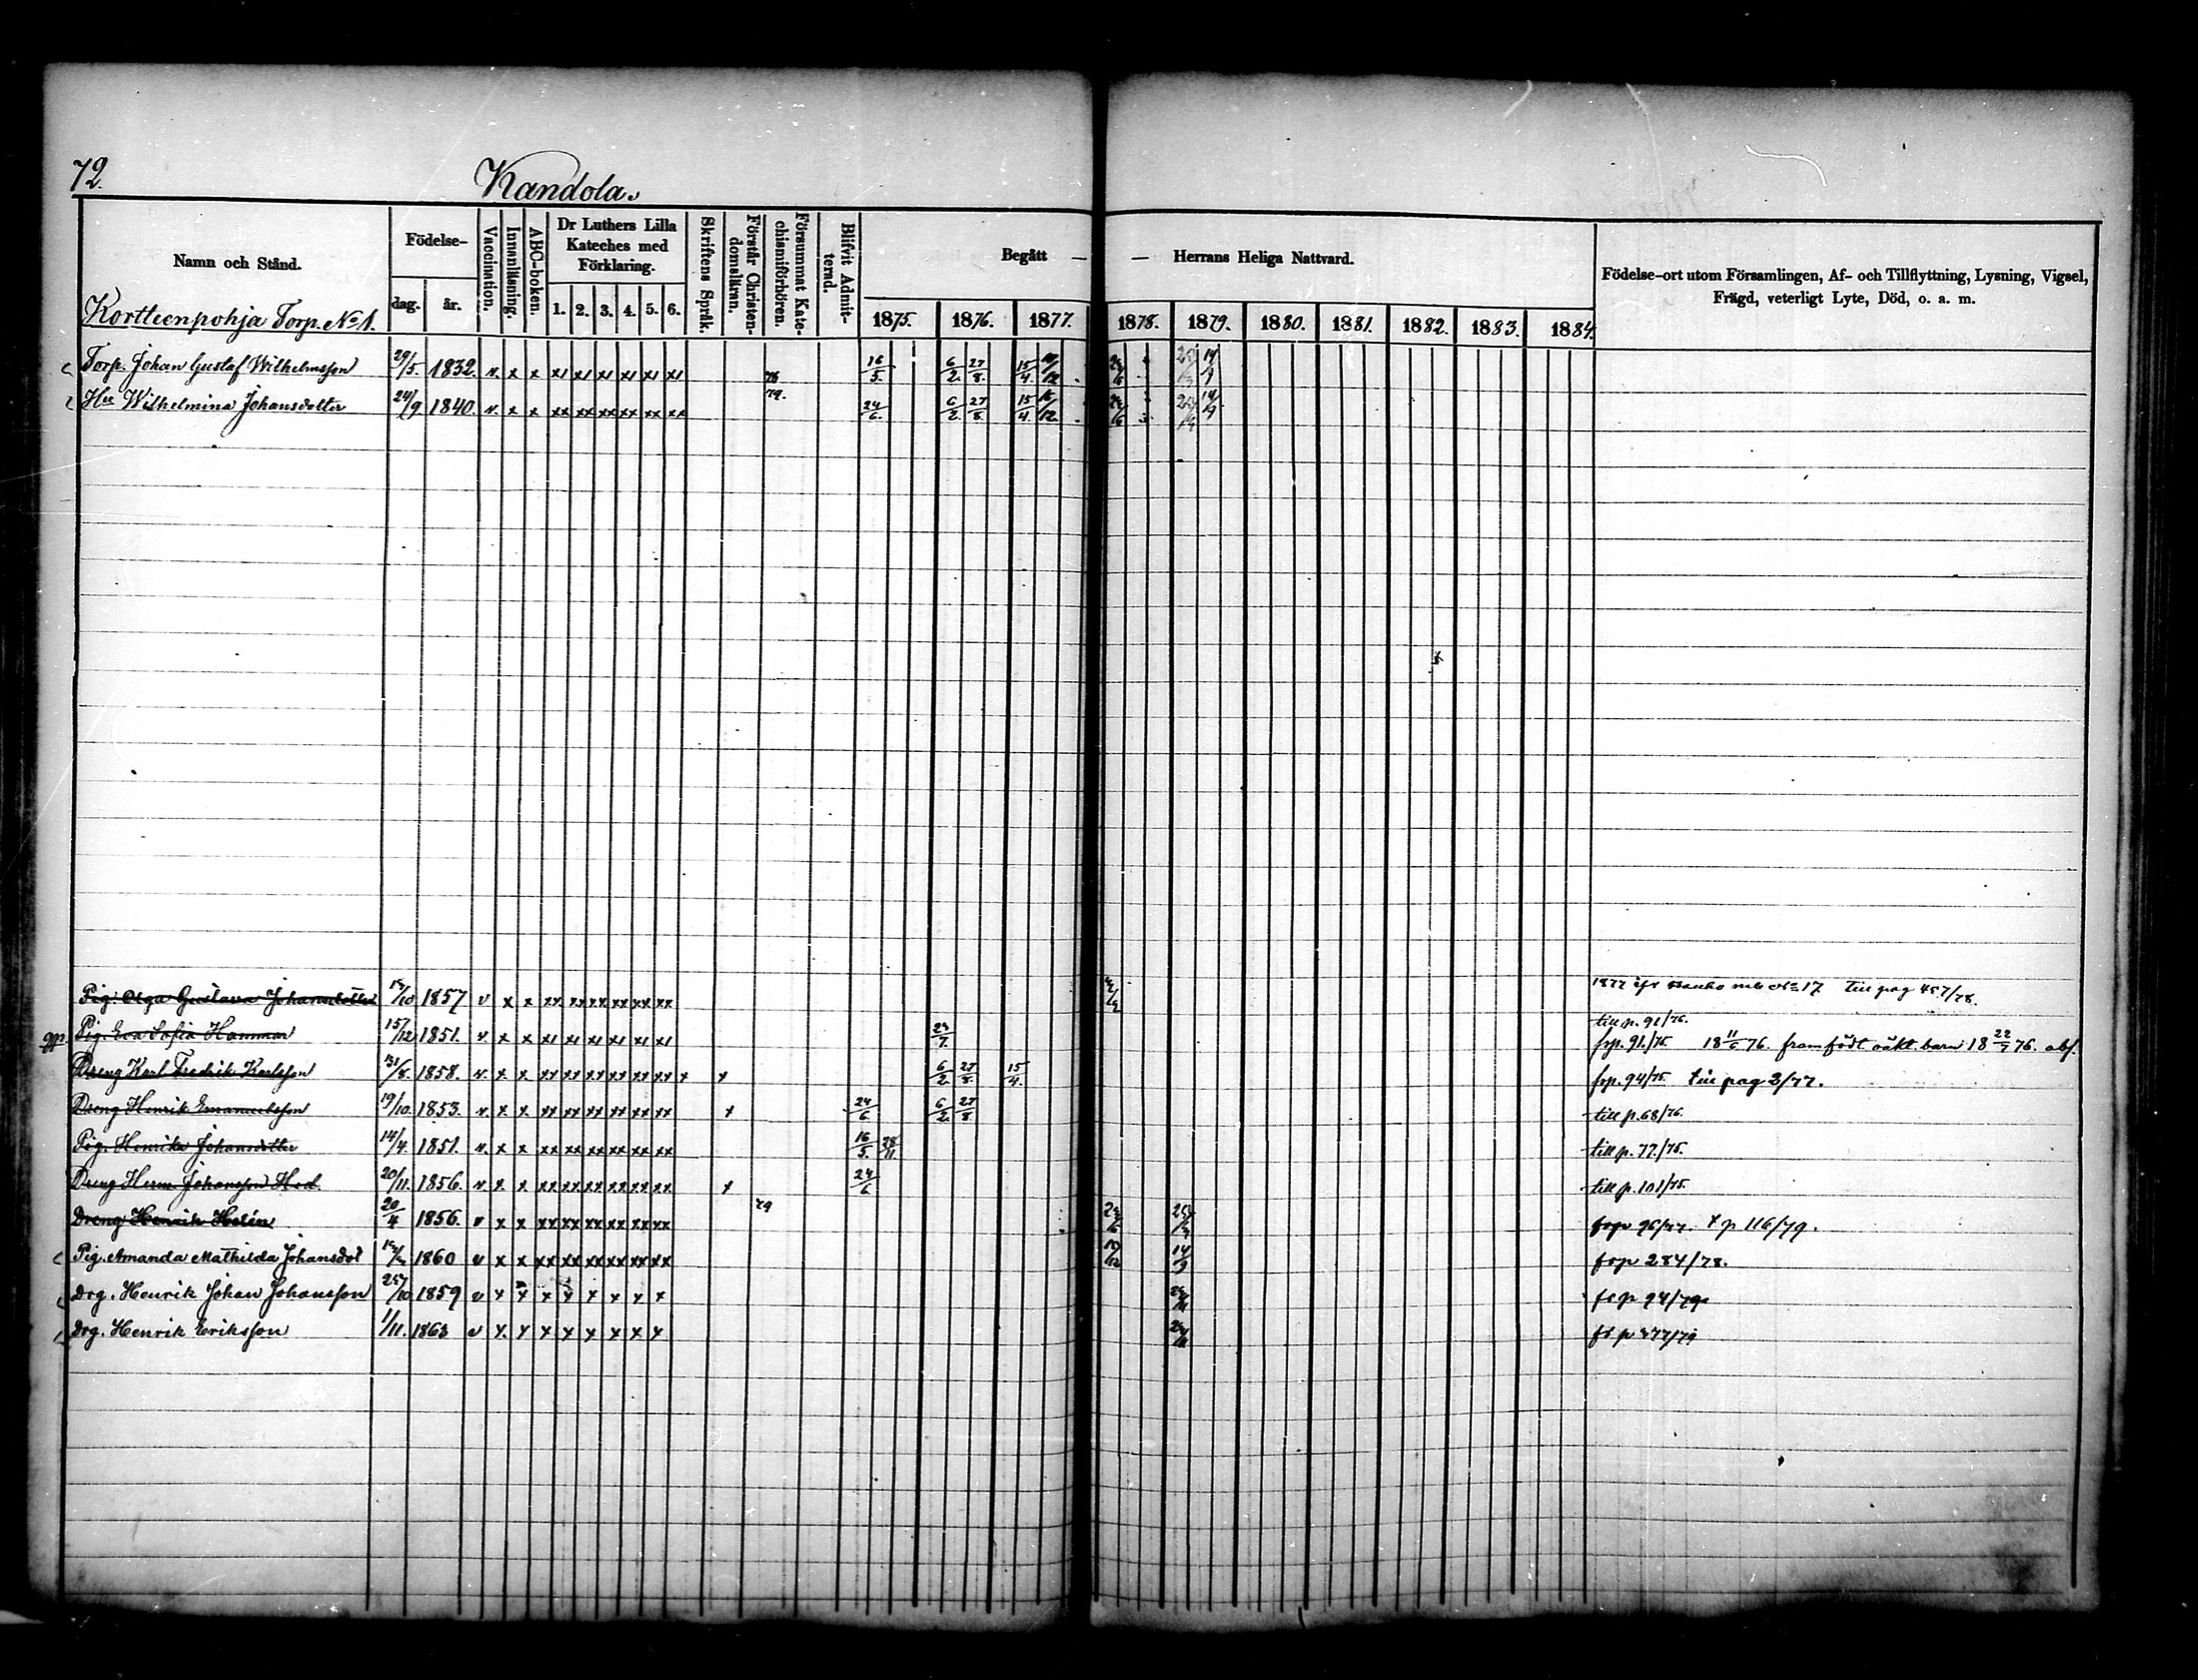 72.
Kandola.
Namn och Stånd.
Födelse-
dag.
år.
Vaccination.
Innanläsning.
ABC-boken.
Dr Luthers Lilla
Kateches med
Förklaring.
1. 2. 3. 4. 5. 6.
Skriftens Språk.
Förstår Christen-
domsläran.
Försummat Kate-
chismiförhören.
Blifvit Admit-
terad.
Begått — — Herrans Heliga Nattvard.
1875. 1876. 1877. 1878. 1879. 1880. 1881. 1882. 1883. 1884.
Födelse-ort utom Församlingen, Af- och Tillflyttning, Lysning, Vigsel,
Frägd, veterligt Lyte, Död, o. a. m.
Kortteenpohja Torp. No 1.
Torp. Johan Gustaf Wilhelmsson 29/5. 1832. v. x x x x x x x x 78 16/5. 6/2. 27/8. 15/4.
Hu Wilhelmina Johansdotter 24/9 1840. v. x x xx xx xx xx xx xx 79. 24/6. 6/2. 27/8. 15/4.
Pig. Olga Gustava Johansdotter 1857 v x x xx xx xx xx xx xx No 17 till pag 457/78.
till p. 91/76.
Pig. Eva Sofia Hammar 15/12 1851. v. x x 23/7. frp. 91./75 18 11/6 76. framfödt oäkt. barn 18 22/7 76. abs.
Dreng Karl Fredrik Karlsson 31/8. 1858. v. x x xx xx xx xx xx xx x x 6/2. 27/8. 15/4. frp. 94/75 till pag 2/77.
Dreng Henrik Emanuelsson 19/10. 1853. v. x x xx xx xx xx xx xx x 24/6 6/2. 27/8 till p. 68/76.
Pig. Henrika Johansdotter 14/4. 1851. v. x x xx xx xx xx xx xx 16/5. 28/11. till p. 77./75.
Dreng Herm. Johansson Hed. 20/11. 1856. v x x xx xx xx xx xx xx x 24/6 till p. 101/75.
Dreng Henrik Helén 20/4 1856. v x x xx xx xx xx xx xx 79 frp 96/77. t p 116/79.
Pig. Amanda Mathilda Johansdot 1860 v x x xx xx xx xx xx xx 14/9 frp 284/78.
Drg. Henrik Johan Johansson 25/10 1859 v x x x x x x x x fr p 94/79
Drg. Henrik Eriksson 1/11. 1863 v x x x x x x x x